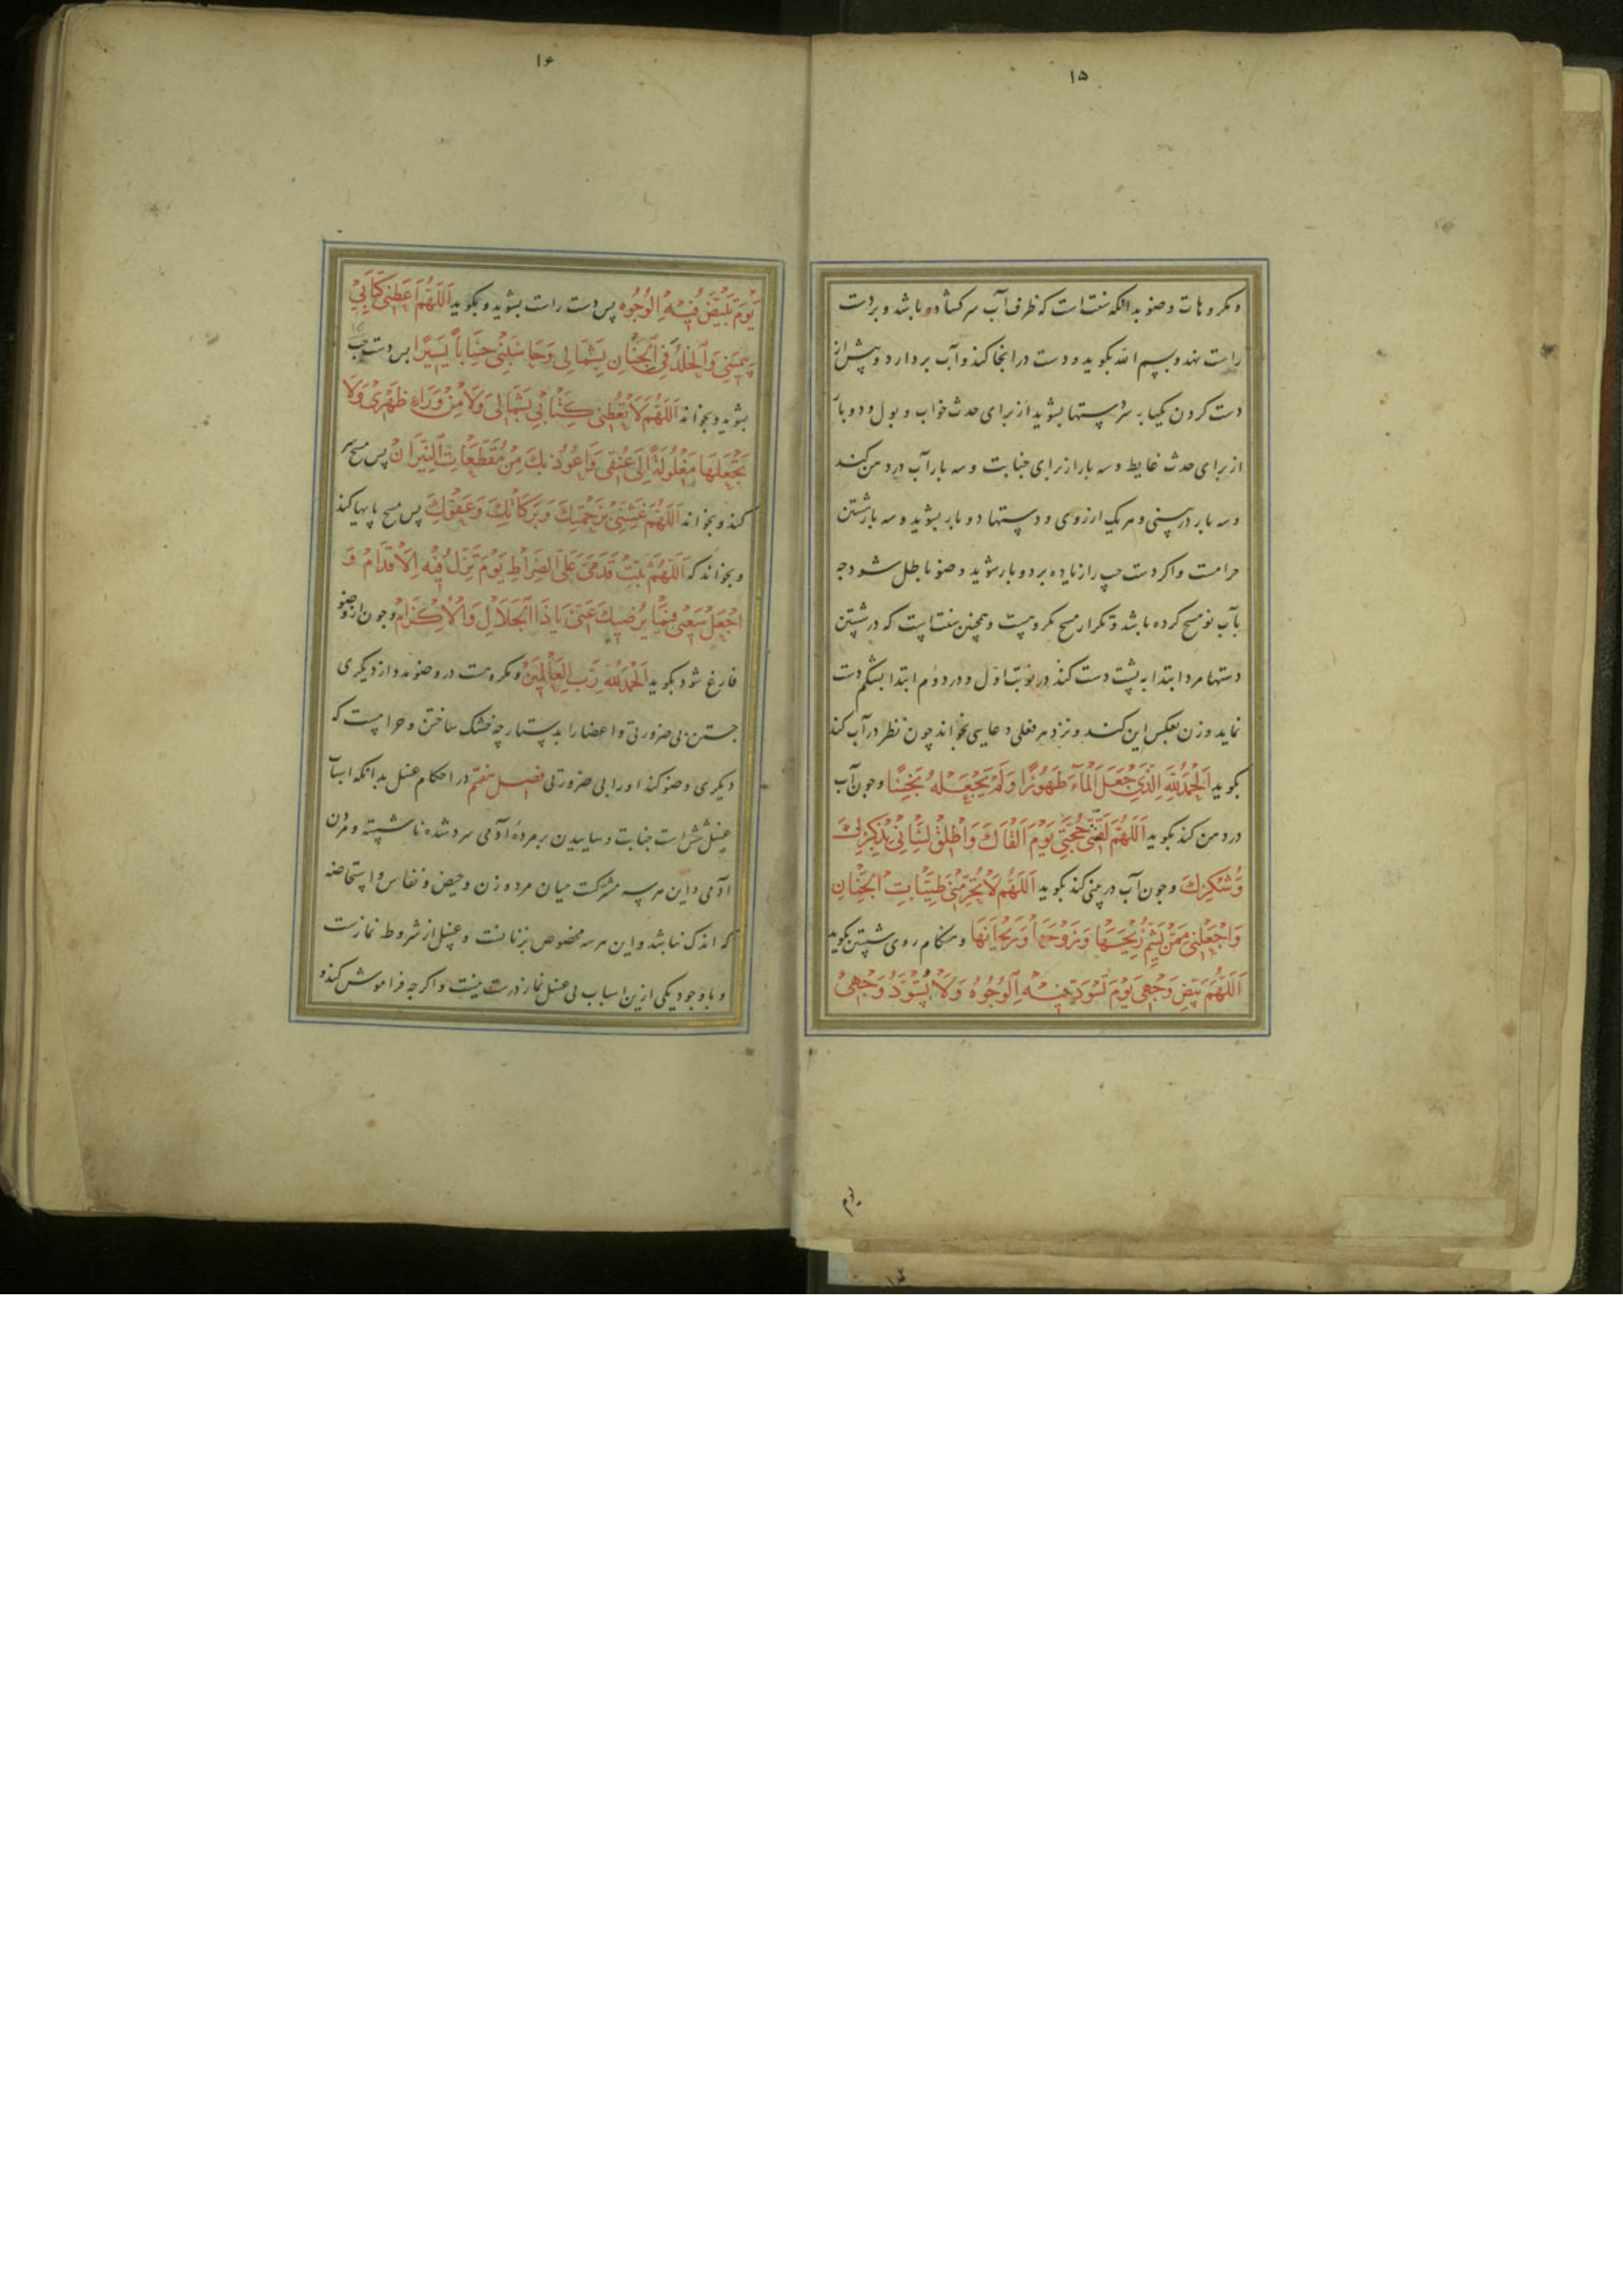 ۱۵
ومکروهات وضو بدانکه سنت است که ظرف آب سرکشاده باشد وبردست
راست نهد وبسم الله بکوید ودست درانجا کند وآب بردارد وپیش از
دست کردن یکبار سردستها بشوید از برای حدث خواب وبول ودوبار
از برای حدث غایط وسه بار از برای جنابت وسه بار آب در دهن کند
وسه بار دربینی وهریک ازروی ودستها دوبار بشوید وسه بار شستن
حرامست واکر دست چپ را زیاده بر دوبار شوید وضو باطل شود چه
بآب نو مسح کرده باشد وتکرار مسح مکروهست وهمچنین سنت است که درشستن
دستها مرد ابتدا به پشت دست کند در نوبت اول ودر دوم ابتدا بشکم دست
نماید وزن بعکس این کند ونزد هر فعلی دعایی بخواند چون نظر درآب کند
بکوید اَلْحَمْدُ لِلّٰهِ الَّذِي جَعَلَ الْمَاءَ طَهُورًا وَلَمْ يَجْعَلْهُ نَجِسًا وچون آب
دردهن کند بکوید اَللّٰهُمَّ لَقِّنِي حُجَّتِي يَوْمَ اَلْقَاكَ وَاَطْلِقْ لِسَانِي بِذِكْرِكَ
وَشُكْرِكَ وچون آب دربینی کند بکوید اَللّٰهُمَّ لَا تُحَرِّمْنِي طَيِّبَاتِ الْجِنَانِ
وَاجْعَلْنِي مِمَّنْ يَشَمُّ رِيحَهَا وَرَوْحَهَا وَرَيْحَانَهَا وهنکام روی شستن بکوید
اَللّٰهُمَّ بَيِّضْ وَجْهِي يَوْمَ تَسْوَدُّ فِيهِ الْوُجُوهُ وَلَا تُسَوِّدْ وَجْهِي
یوم
۱۶
يَوْمَ تَبْيَضُّ فِيهِ الْوُجُوهُ پس دست راست بشوید وبکوید اَللّٰهُمَّ اَعْطِنِي كِتَابِي
بِيَمِينِي وَالْخُلْدَ فِي الْجِنَانِ بِشِمَالِي وَحَاسِبْنِي حِسَابًا يَسِيرًا پس دست چپ
بشوید وبخواند اَللّٰهُمَّ لَا تُعْطِنِي كِتَابِي بِشِمَالِي وَلَا مِنْ وَرَاءِ ظَهْرِي وَلَا
تَجْعَلْهَا مَغْلُولَةً اِلَى عُنُقِي وَاَعُوذُ بِكَ مِنْ مُقَطَّعَاتِ النِّيرَانِ پس مسح سر
کند وبخواند اَللّٰهُمَّ غَشِّنِي بِرَحْمَتِكَ وَبَرَكَاتِكَ وَعَفْوِكَ پس مسح پایها کند
وبخواند که اَللّٰهُمَّ ثَبِّتْ قَدَمَيَّ عَلَى الصِّرَاطِ يَوْمَ تَزِلُّ فِيهِ الْاَقْدَامُ وَ
اجْعَلْ سَعْيِي فِيمَا يُرْضِيكَ عَنِّي يَا ذَا الْجَلَالِ وَالْاِكْرَامِ وچون از وضو
فارغ شود بکوید اَلْحَمْدُ لِلّٰهِ رَبِّ الْعَالَمِينَ ومکروهست در وضو مدد از دیکری
جستن بی ضرورتی واعضا را بدستارچه خشک ساختن وحرامست که
دیکری وضو کند او را بی ضرورتی فصل هفتم در احکام غسل بدانکه اسباب
غسل شش است جنابت وساییدن بر مردهٔ آدمی سرد شده ناشسته ومردن
آدمی واین هر سه مشترکست میان مرد وزن وحیض ونفاس واستحاضه
که اندک نباشد واین هر سه مخصوص بزنانست وغسل از شروط نمازست
وباوجود یکی ازین اسباب بی غسل نماز درست نیست واکرچه فراموش کند و